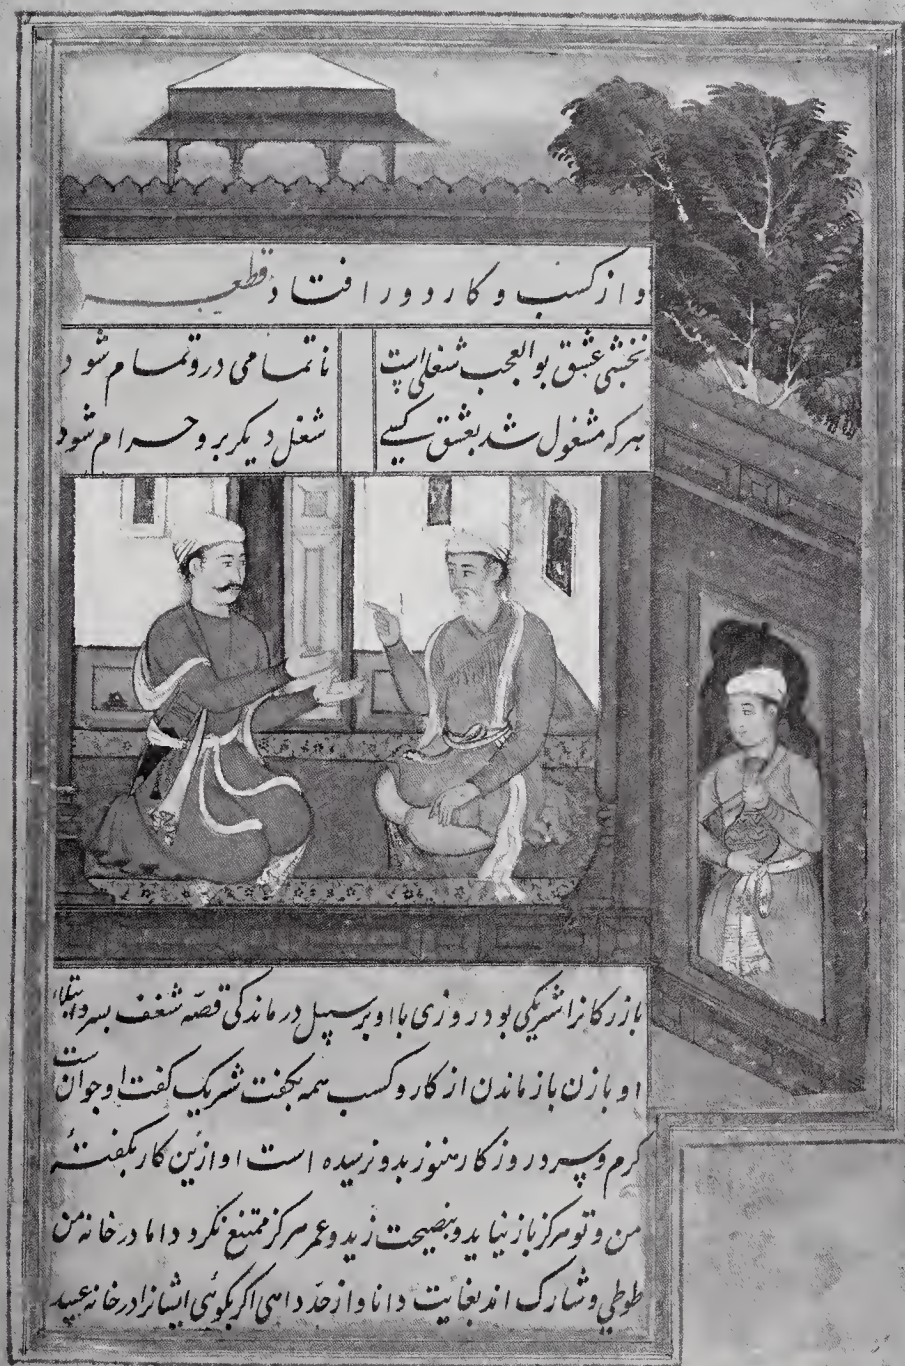 و از کسب و کار دور افتاد قطعه
نخشبی عشق بوالعجب شغلی است ناتمامی درو تمام شود
هرکه مشغول شد بعشق کسی شغل دیکر برو حرام شود
بازرکانرا شریکی بود روزی با او بر سبیل درماندکی قصه شغف پسر و ابتلاء
او بازن باز ماندن از کار و کسب همه بکفت شریک کفت او جوان است
کرم و سرد روزکار هنوز بدو نرسیده است او ازین کار بکفتهٔ
من و تو هرکز باز نیاید و بنصیحت زید و عمر هرکز ممتنع نکردد اما در خانه من
طوطی و شارک اند بغایت دانا و از حد داهی اکر بکوئی ایشانرا در خانه عبید